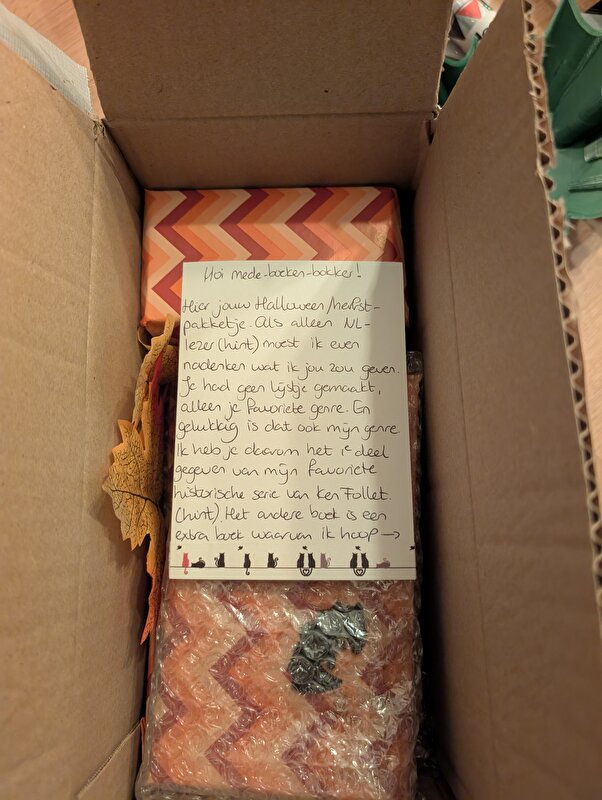 Hoi mede-boeken-bokker!
Hier jouw Halloween/herfst-
pakketje. Als alleen NL-
lezer (hint) moest ik even
nadenken wat ik jou zou geven.
Je had geen lijstje gemaakt,
alleen je favoriete genre. En
gelukkig is dat ook mijn genre
Ik heb je daarom het 1e deel
gegeven van mijn favoriete
historische serie van Ken Follet.
(hint). Het andere boek is een
extra boek waarvan ik hoop →